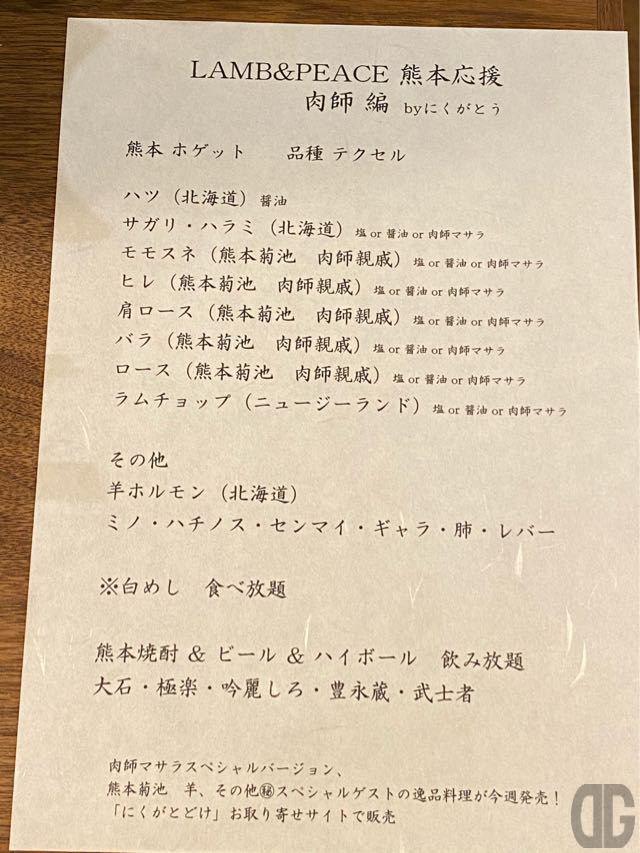 LAMB&PEACE 熊本応援
肉師 編 byにくがとう
熊本 ホゲット 品種 テクセル
ハツ（北海道）醤油
サガリ・ハラミ（北海道）塩 or 醤油 or 肉師マサラ
モモスネ（熊本菊池 肉師親戚）塩 or 醤油 or 肉師マサラ
ヒレ（熊本菊池 肉師親戚）塩 or 醤油 or 肉師マサラ
肩ロース（熊本菊池 肉師親戚）塩 or 醤油 or 肉師マサラ
バラ（熊本菊池 肉師親戚）塩 or 醤油 or 肉師マサラ
ロース（熊本菊池 肉師親戚）塩 or 醤油 or 肉師マサラ
ラムチョップ（ニュージーランド）塩 or 醤油 or 肉師マサラ
その他
羊ホルモン（北海道）
ミノ・ハチノス・センマイ・ギャラ・肺・レバー
※白めし 食べ放題
熊本焼酎 & ビール & ハイボール 飲み放題
大石・極楽・吟麗しろ・豊永蔵・武士者
肉師マサラスペシャルバージョン、
熊本菊池 羊、その他㊙スペシャルゲストの逸品料理が今週発売！
「にくがとどけ」お取り寄せサイトで販売
DG